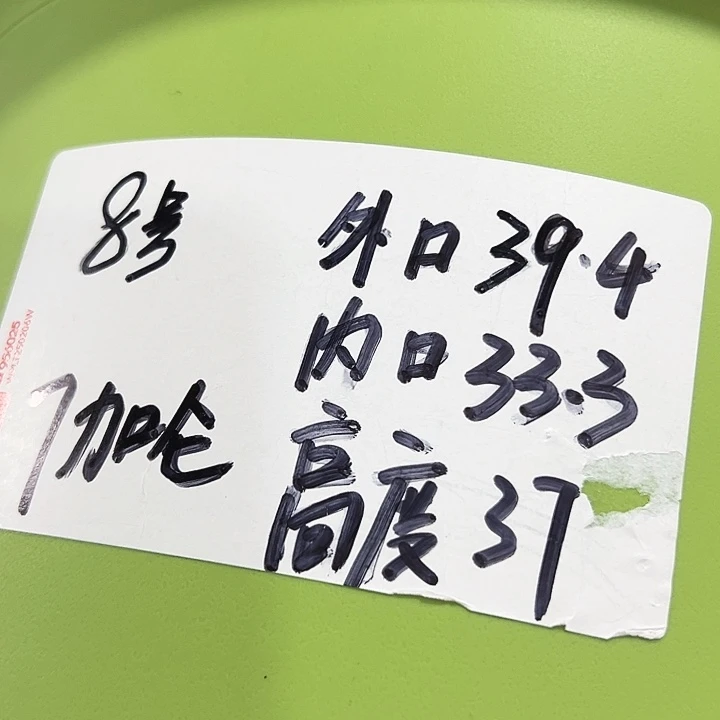 8号
7加仑
外口39.4
内口33.3
高度37